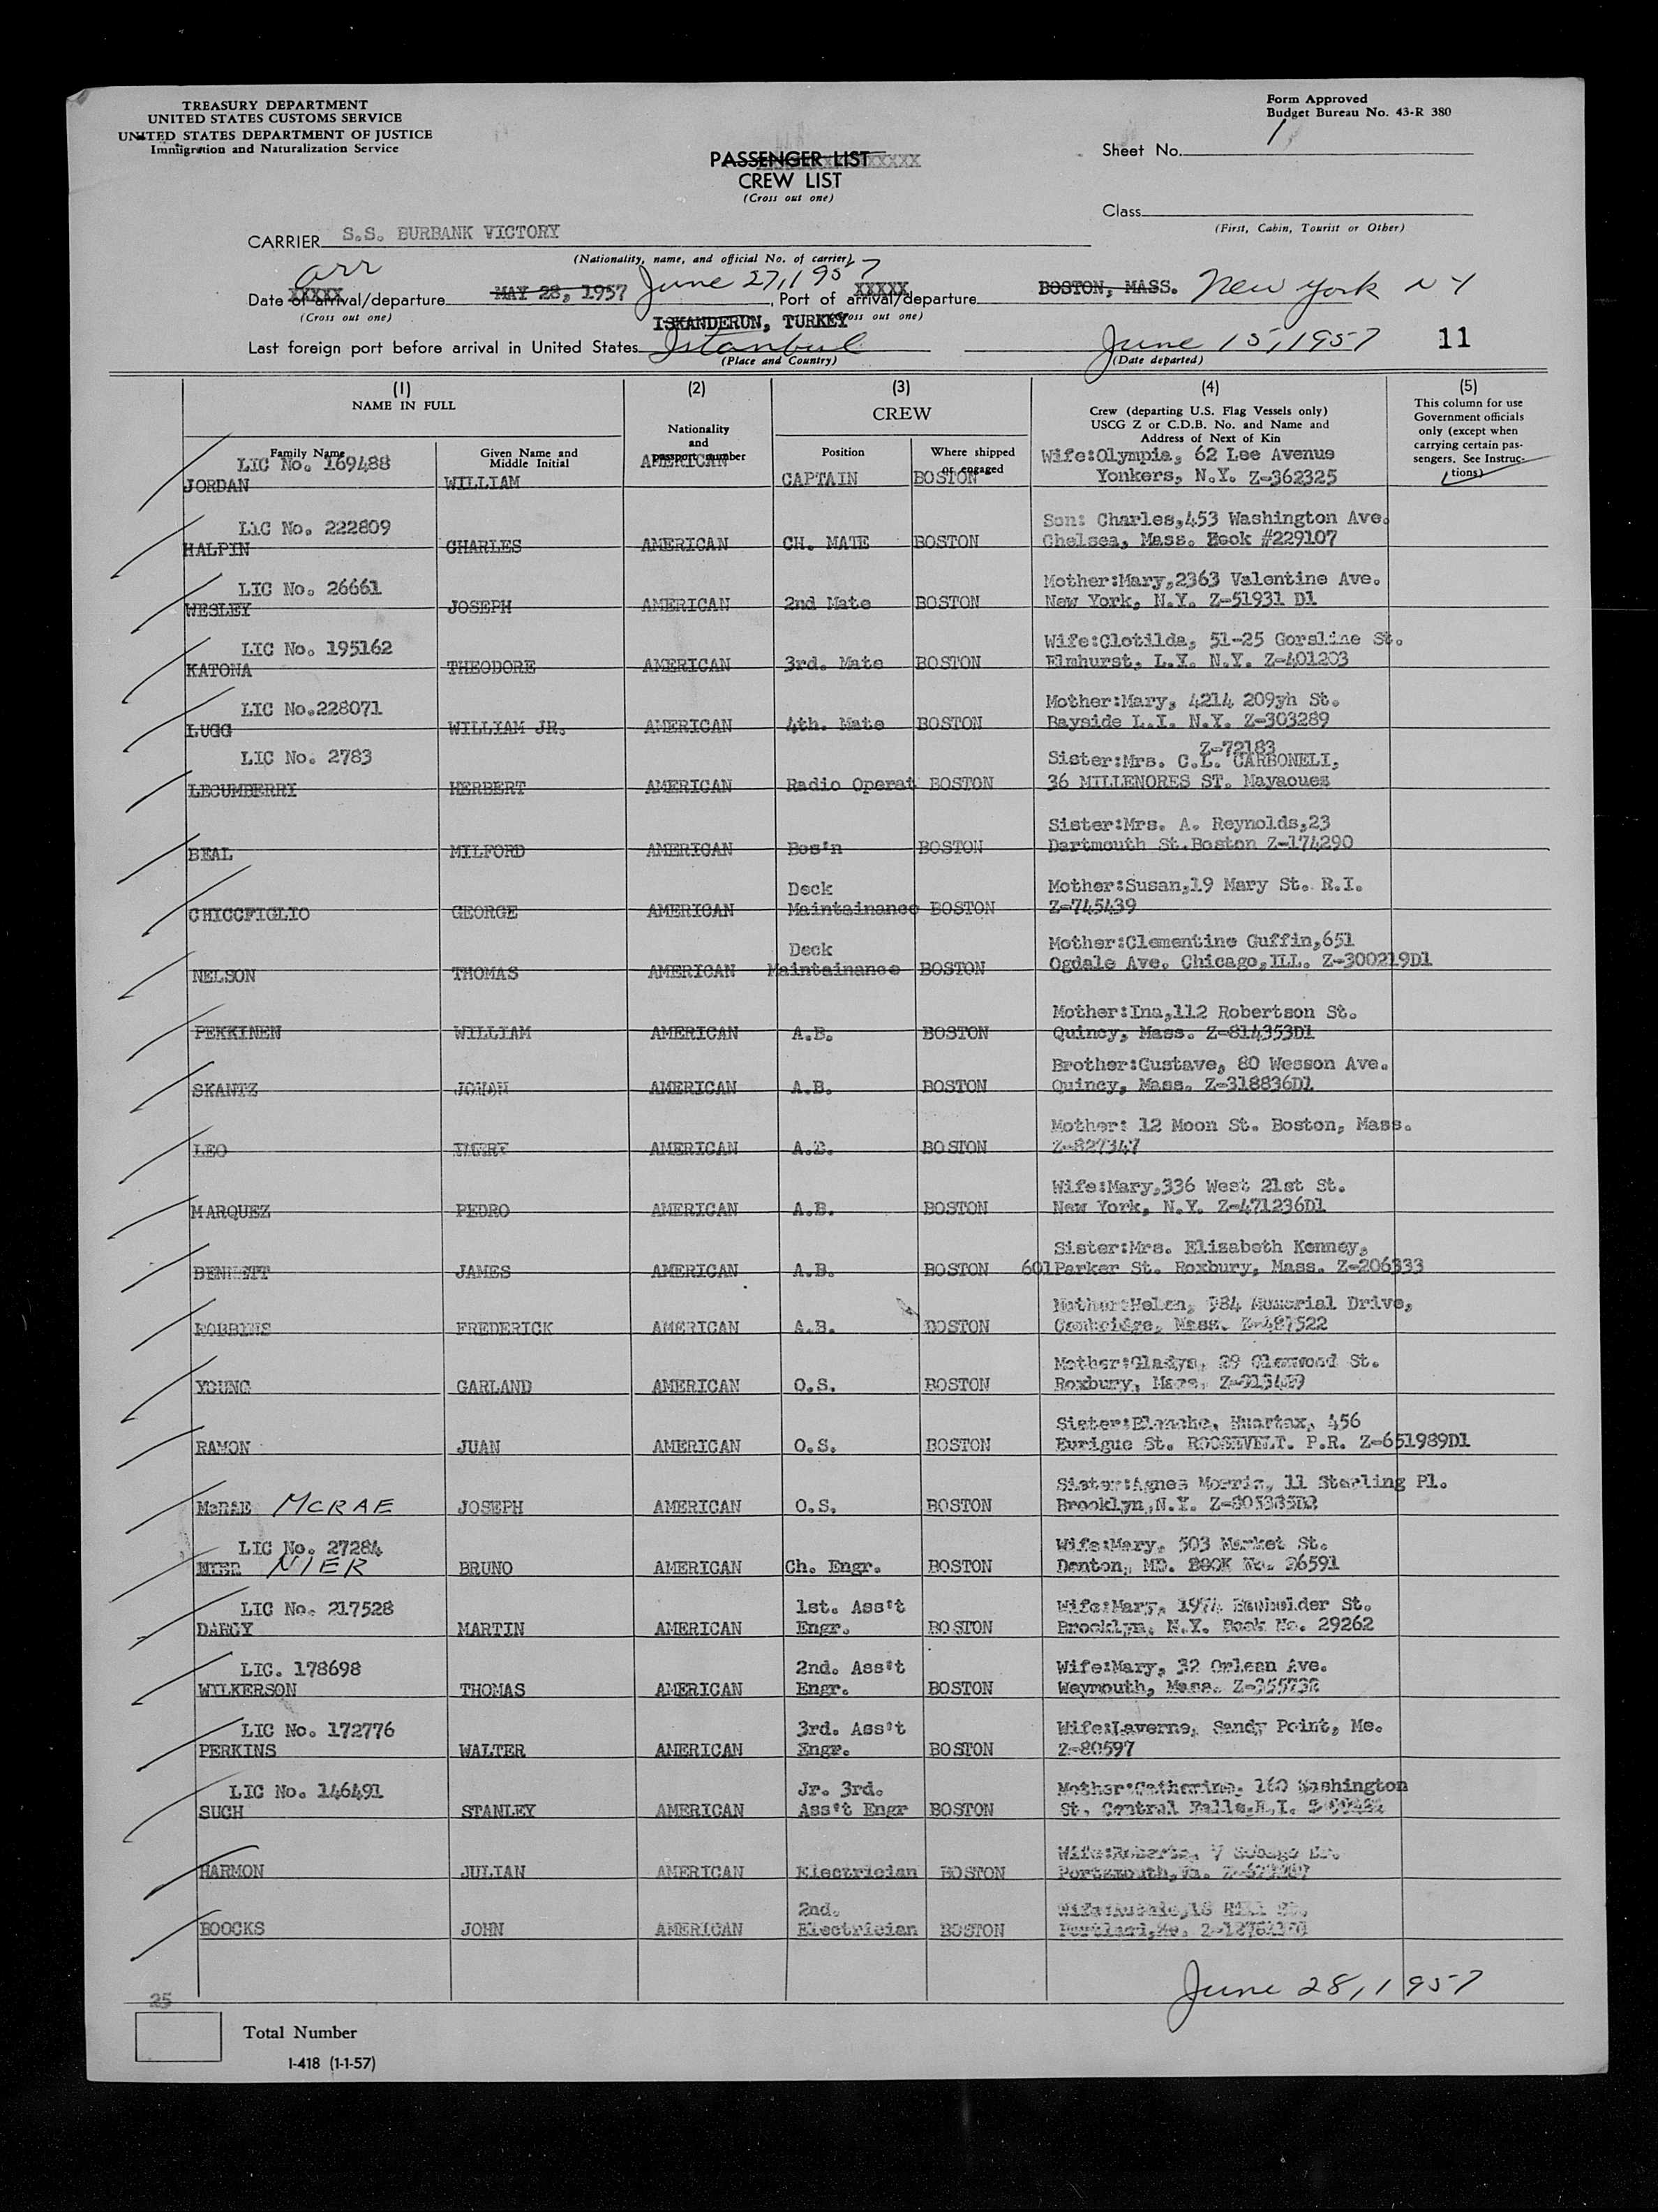 TREASURY DEPARTMENT
UNITED STATES CUSTOMS SERVICE
UNITED STATES DEPARTMENT OF JUSTICE
Immigration and Naturalization Service
Form Approved
Budget Bureau No. 43-R 380
Sheet No. 1
PASSENGER LIST XXXXX
CREW LIST
(Cross out one)
Class
(First, Cabin, Tourist or Other)
CARRIER S.S. BURBANK VICTORY
(Nationality, name, and official No. of carrier)
arr
Date of arrival/departure MAY 28, 1957 June 27, 1957, Port of arrival/departure BOSTON, MASS. New York N Y
(Cross out one) (Cross out one)
ISKANDERUN, TURKEY
Last foreign port before arrival in United States Istanbul June 15, 1957 11
(Place and Country) (Date departed)
(1) (2) (3) (4) (5)
NAME IN FULL
Family Name Given Name and Middle Initial
Nationality and passport number
CREW
Position Where shipped or engaged
Crew (departing U.S. Flag Vessels only)
USCG Z or C.D.B. No. and Name and
Address of Next of Kin
This column for use
Government officials
only (except when
carrying certain pas-
sengers. See Instruc-
tions)
LIC No. 169488 AMERICAN Wife:Olympia, 62 Lee Avenue
JORDAN WILLIAM CAPTAIN BOSTON Yonkers, N.Y. Z-362325
LIC No. 222809 Son: Charles,453 Washington Ave.
HALPIN CHARLES AMERICAN CH. MATE BOSTON Chelsea, Mass. Book #229107
LIC No. 26661 Mother:Mary,2363 Valentine Ave.
WESLEY JOSEPH AMERICAN 2nd Mate BOSTON New York, N.Y. Z-51931 D1
LIC No. 195162 Wife:Clotilda, 51-25 Gorsline St.
KATONA THEODORE AMERICAN 3rd. Mate BOSTON Elmhurst, L.I. N.Y. Z-401203
LIC No.228071 Mother:Mary, 4214 209yh St.
LUGG WILLIAM JR. AMERICAN 4th. Mate BOSTON Bayside L.I. N.Y. Z-303289
Z-72183
LIC No. 2783 Sister:Mrs. C.L. CARBONELI,
LECUMBERRY HERBERT AMERICAN Radio Operat BOSTON 36 MILLENORES ST. Mayaoues
Sister:Mrs. A. Reynolds,23
BEAL MILFORD AMERICAN Bos'n BOSTON Dartmouth St.Boston Z-174290
Deck Mother:Susan,19 Mary St. R.I.
CHICCFIGLIO GEORGE AMERICAN Maintainance BOSTON Z-745439
Deck Mother:Clementine Guffin,651
NELSON THOMAS AMERICAN Maintainance BOSTON Ogdale Ave. Chicago,ILL. Z-300219D1
Mother:Ina,112 Robertson St.
PEKKINEN WILLIAM AMERICAN A.B. BOSTON Quincy, Mass. Z-814353D1
Brother:Gustave, 80 Wesson Ave.
SKANTZ JOHAN AMERICAN A.B. BOSTON Quincy, Mass. Z-318836D1
Mother: 12 Moon St. Boston, Mass.
LEO AMERICAN A.B. BOSTON Z-827347
Wife:Mary,336 West 21st St.
MARQUEZ PEDRO AMERICAN A.B. BOSTON New York, N.Y. Z-471236D1
Sister:Mrs. Elizabeth Kenney,
BENNETT JAMES AMERICAN A.B. BOSTON 601Parker St. Roxbury, Mass. Z-206333
Mother:Helen, 984 Memorial Drive,
ROBBINS FREDERICK AMERICAN A.B. BOSTON Cambridge, Mass. Z-487522
Mother:Gladys, 29 Glenwood St.
YOUNG GARLAND AMERICAN O.S. BOSTON Roxbury, Mass.
Sister:Blanche, 456
RAMON JUAN AMERICAN O.S. BOSTON Eurigue St. ROOSEVELT. P.R. Z-651989D1
Sister:Agnes Morris, 11 Sterling Pl.
McRAE MCRAE JOSEPH AMERICAN O.S. BOSTON Brooklyn,N.Y. Z-805385D2
LIC No. 27284 Wife:Mary, 503 Market St.
NIER BRUNO AMERICAN Ch. Engr. BOSTON Denton, MD. BOOK No. 26591
LIC No. 217528 1st. Ass't Wife:Mary, St.
DARCY MARTIN AMERICAN Engr. BOSTON Brooklyn, N.Y. Book No. 29262
LIC. 178698 2nd. Ass't Wife:Mary, 32 Orlean Ave.
WILKERSON THOMAS AMERICAN Engr. BOSTON Weymouth, Mass. Z-355732
LIC No. 172776 3rd. Ass't Wife:Laverne, Sandy Point, Me.
PERKINS WALTER AMERICAN Engr. BOSTON Z-80597
LIC No. 146491 Jr. 3rd. Mother:Catherine, 160 Washington
SUCH STANLEY AMERICAN Ass't Engr BOSTON St. Central Falls,R.I.
Wife:Roberta, 7 Sebago
HARMON JULIAN AMERICAN Electrician BOSTON Portsmouth,Va.
2nd. 18 Hill St.
BOOCKS JOHN AMERICAN Electrician BOSTON Portland,Me.
June 28, 1957
25
Total Number
I-418 (1-1-57)